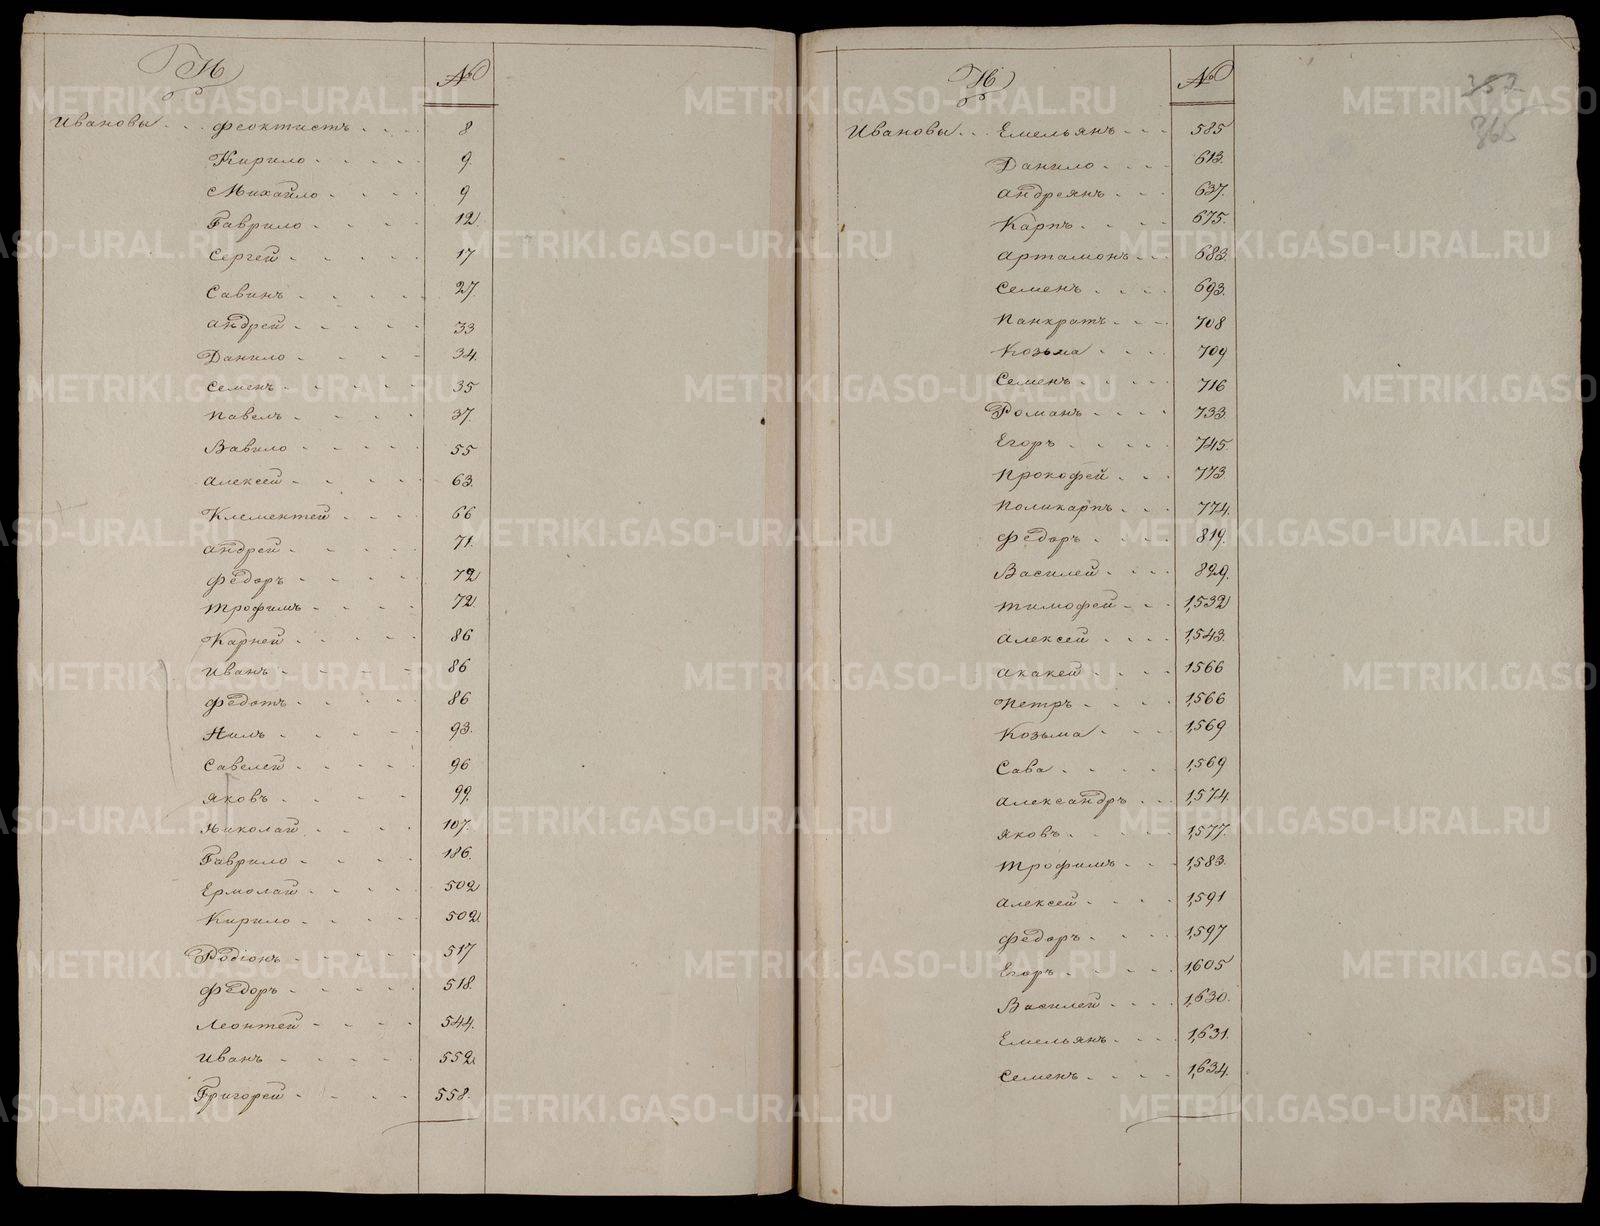 И №
Ивановы Феоктистъ 8
Кирило 9
Михайло 9
Гаврило 12
Сергей 17
Савинъ 27.
Андрей 33
Данило 34.
Семенъ 35
Павелъ 37.
Вавило 55
Алексей 63.
Клементей 66
Андрей 71.
Федоръ 72
Трофимъ 72
Карней 86
Иванъ 86
Федотъ 86
Нилъ 93.
Савелей 96
Яковъ 99.
Николай 107.
Гаврило 186.
Ермолай 502
Кирило 502
Родіонъ 517
Федоръ 518.
Леонтей 544.
Иванъ 552
Григорей 558.
И №
357
365
Ивановы Емельянъ 585
Данило 613.
Андреянъ 637.
Карпъ 675.
Артамонъ 683.
Семенъ 693.
Панкратъ 708
Козьма 709
Семенъ 716
Романъ 733.
Егоръ 745.
Прокофей 773.
Поликарпъ 774.
Федоръ 819.
Василей 829.
Тимофей 1,532
Алексей 1,543.
Акакей 1566
Петръ 1,566
Козьма 1,569
Сава 1,569
Александръ 1,574.
Яковъ 1,577.
Трофимъ 1,583.
Алексей 1,591
Федоръ 1,597
Егоръ 1,605
Василей 1,630.
Емельянъ 1,631.
Семенъ 1,634.
METRIKI.GASO-URAL.RU